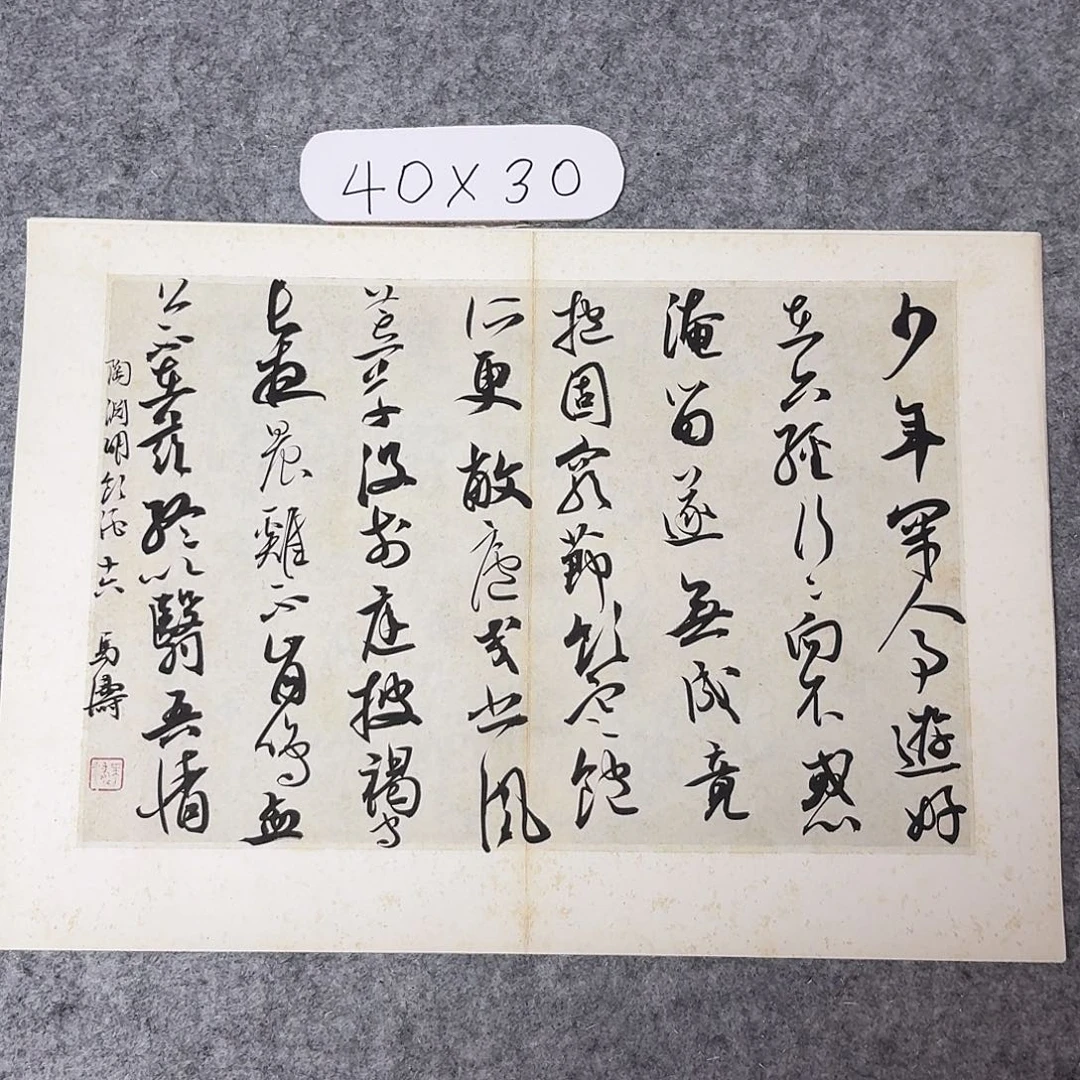 40X30
少年罕人事遊好
在六經行〻向不惑
淹留遂無成竟
抱固窮節飢寒飽
所更敝廬交悲風
荒草没前庭披褐守
長夜晨雞不肯鳴孟
公不在茲終以翳吾情
陶淵明飲酒十六 馬濤